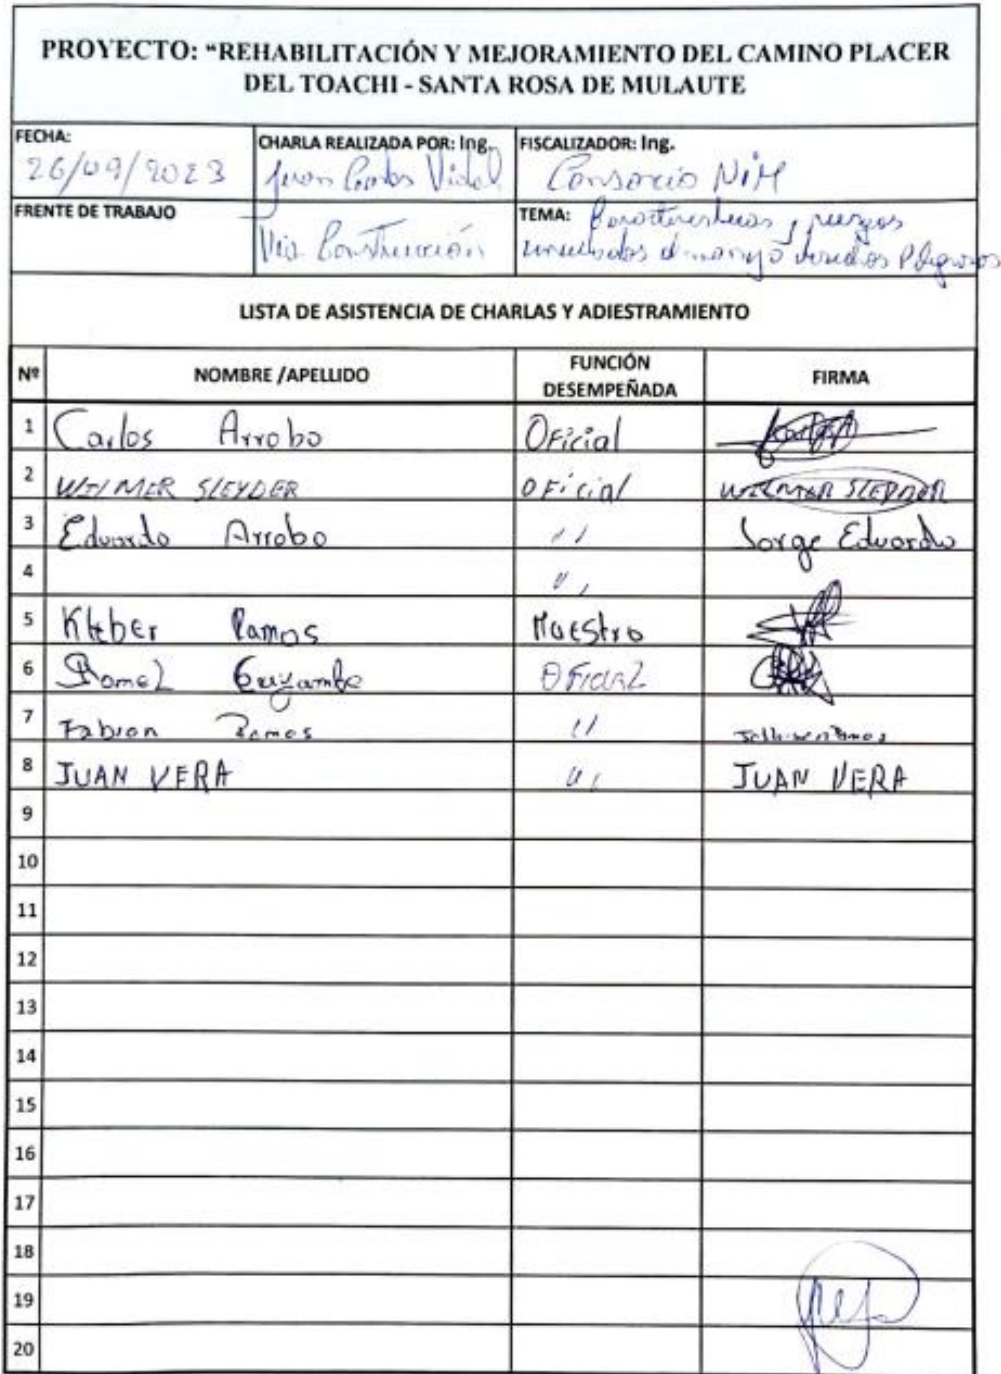 PROYECTO: “REHABILITACIÓN Y MEJORAMIENTO DEL CAMINO PLACER
DEL TOACHI - SANTA ROSA DE MULAUTE
FECHA:
26/09/2023
CHARLA REALIZADA POR: Ing.
Juan Carlos Vidal
FISCALIZADOR: Ing.
Consorcio NiM
FRENTE DE TRABAJO
Via Construcción
TEMA: Caracteristicas y riesgos
manejo desechos Peligrosos
LISTA DE ASISTENCIA DE CHARLAS Y ADIESTRAMIENTO
Nº NOMBRE /APELLIDO FUNCIÓN DESEMPEÑADA FIRMA
1 Carlos Arrobo Oficial
2 WILMER SLEYDER OFicial WILMER
3 Eduardo Arrobo '' Jorge Eduardo
4 ''
5 Kleber Ramos Maestro
6 Romel OFICIAL
7 Fabian Ramos ''
8 JUAN VERA '' JUAN VERA
9
10
11
12
13
14
15
16
17
18
19
20